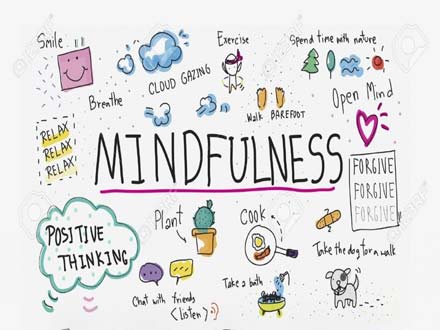 Smile
CLOUD GAZING
Exercise
Spend time with nature
Breathe
Walk BAREFOOT
Open Mind
RELAX
RELAX
RELAX
MINDFULNESS
FORGIVE
FORGIVE
FORGIVE
POSITIVE
THINKING
Plant
Cook
Take the dog for a walk
Chat with friends
<listen>
Take a bath